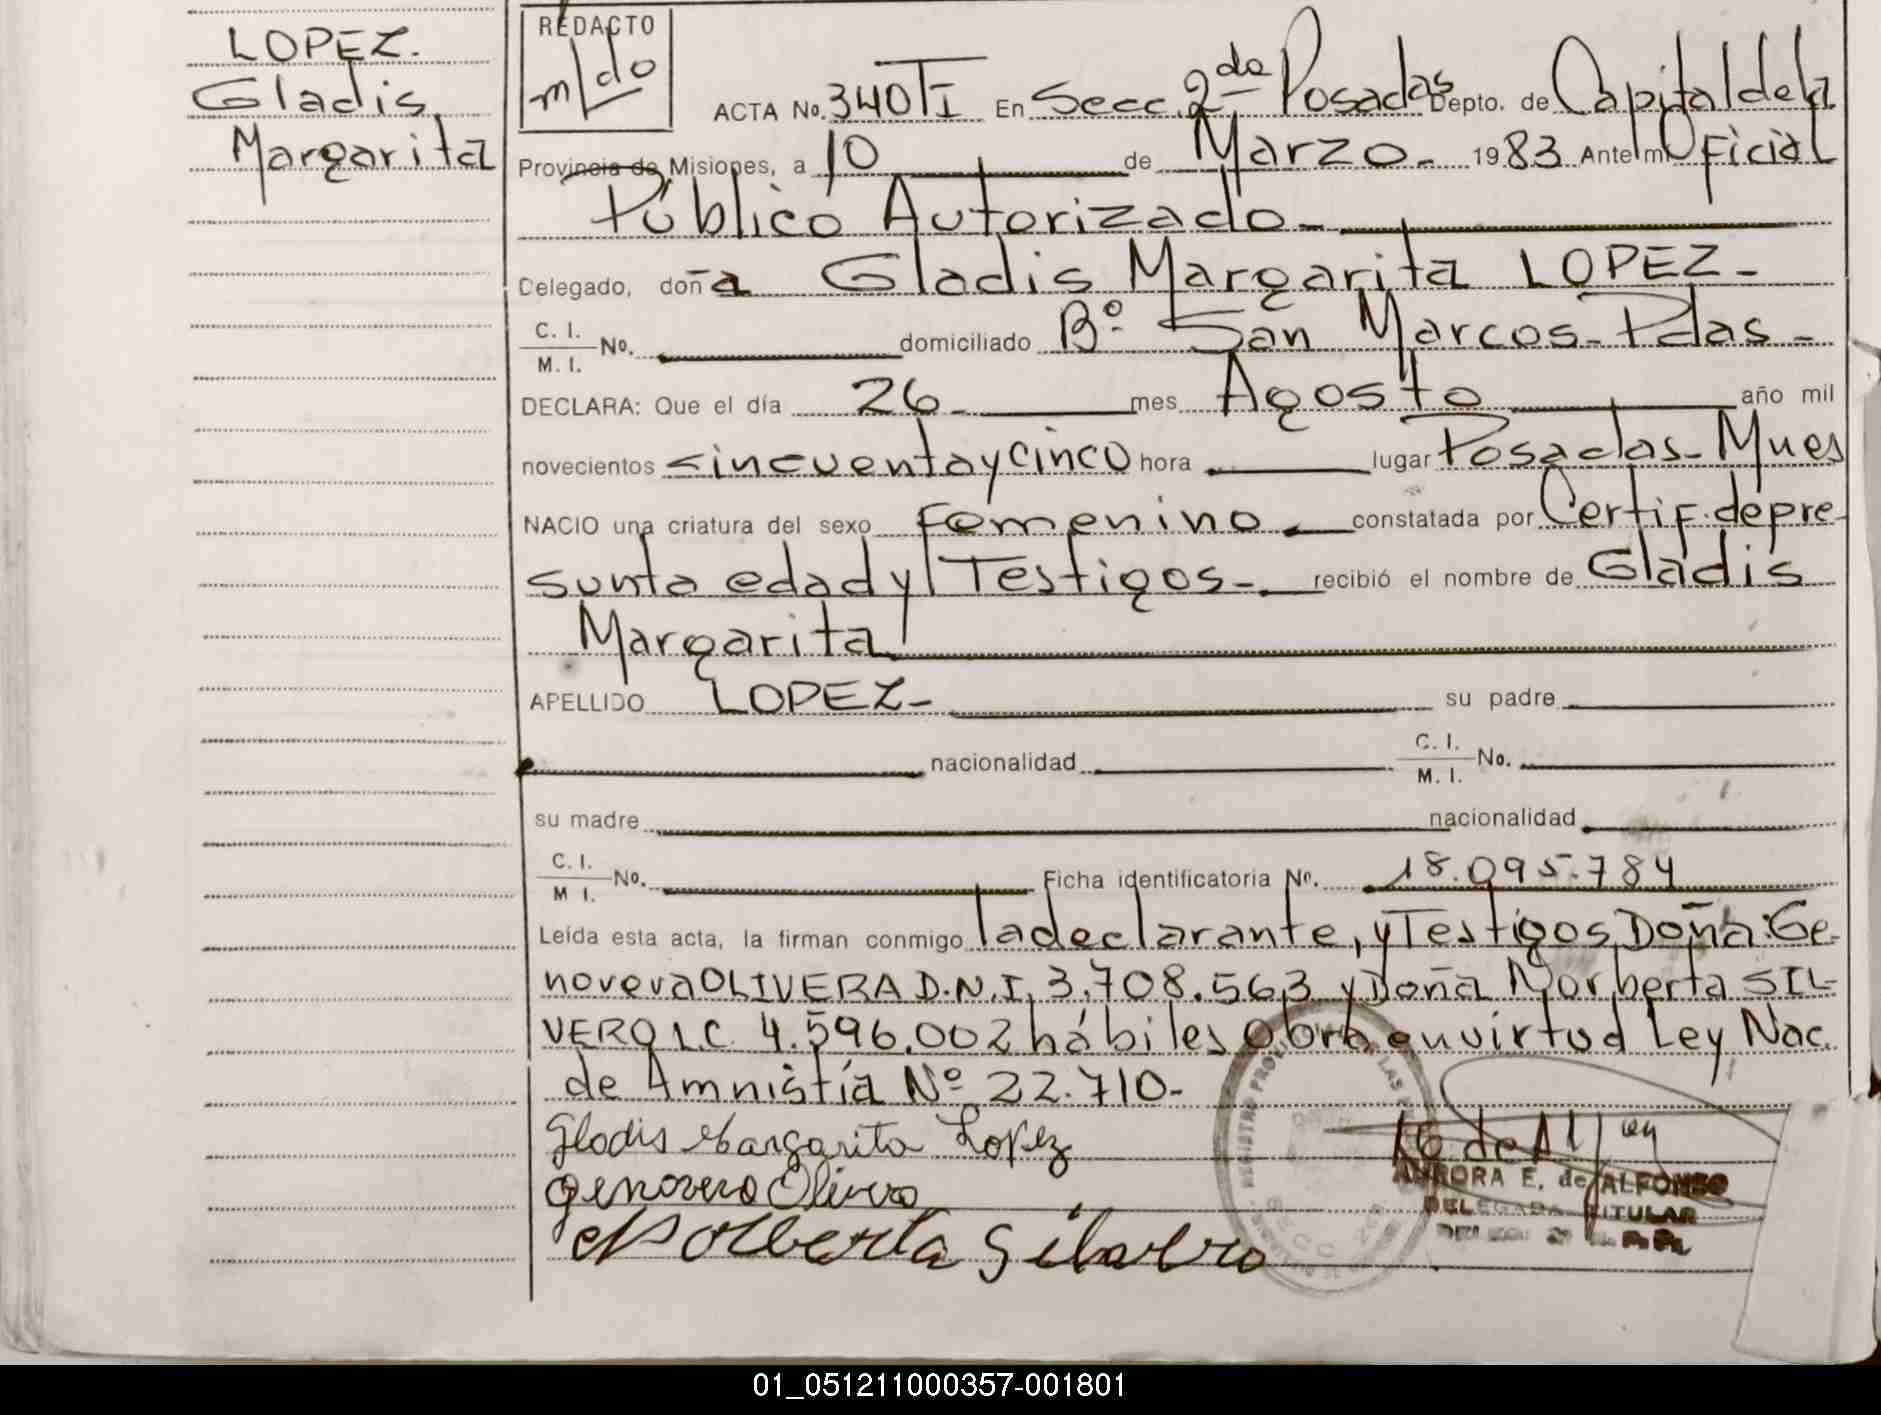 LOPEZ.
Gladis
Margarita
REDACTO
ACTA No. 340 TI En Secc. 2da Posadas Depto. de Capital de la
Provincia de Misiones, a 10 de Marzo - 1983 Ante mi Oficial
Público Autorizado -
Delegado, doña Gladis Margarita LOPEZ -
C. I.
M. I. No. domiciliado Bº San Marcos - Pdas -
DECLARA: Que el día 26 - mes Agosto año mil
novecientos cincuenta y cinco hora lugar Posadas - Mnes
NACIO una criatura del sexo femenino. constatada por Certif. de pre-
sunta edad y Testigos - recibió el nombre de Gladis
Margarita
APELLIDO LOPEZ - su padre
nacionalidad C. I.
M. I. No.
su madre nacionalidad
C. I.
M. I. No. Ficha identificatoria No. 18.095.784
Leída esta acta, la firman conmigo la declarante, y Testigos Doña: Ge-
noveva OLIVERA D.N.I. 3.708.563 y Doña Norberta SIL-
VERO L.C. 4.596.002 hábiles Obra en virtud Ley Nac.
de Amnistía Nº 22.710 -
Gladis Margarita Lopez
genovera Olivera
Norberta Silvero
AURORA E. de ALFONSO
DELEGADA TITULAR
01_051211000357-001801